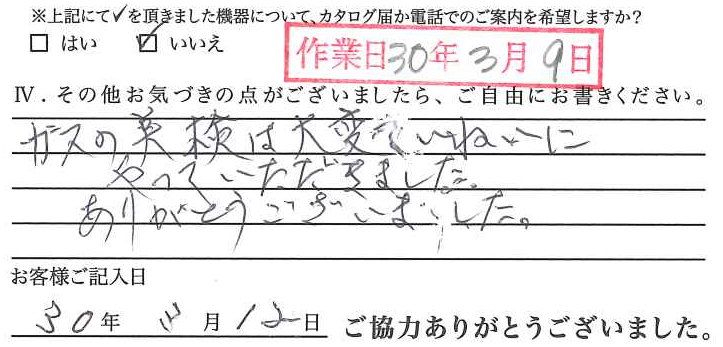 ※上記にて✓を頂きました機器について、カタログ届か電話でのご案内を希望しますか？
□ はい ☑ いいえ
作業日30年3月9日
Ⅳ．その他お気づきの点がございましたら、ご自由にお書きください。
ガスの点検は大変ていねいに
やっていただきました。
ありがとうございました。
お客様ご記入日
30年 3月12日 ご協力ありがとうございました。